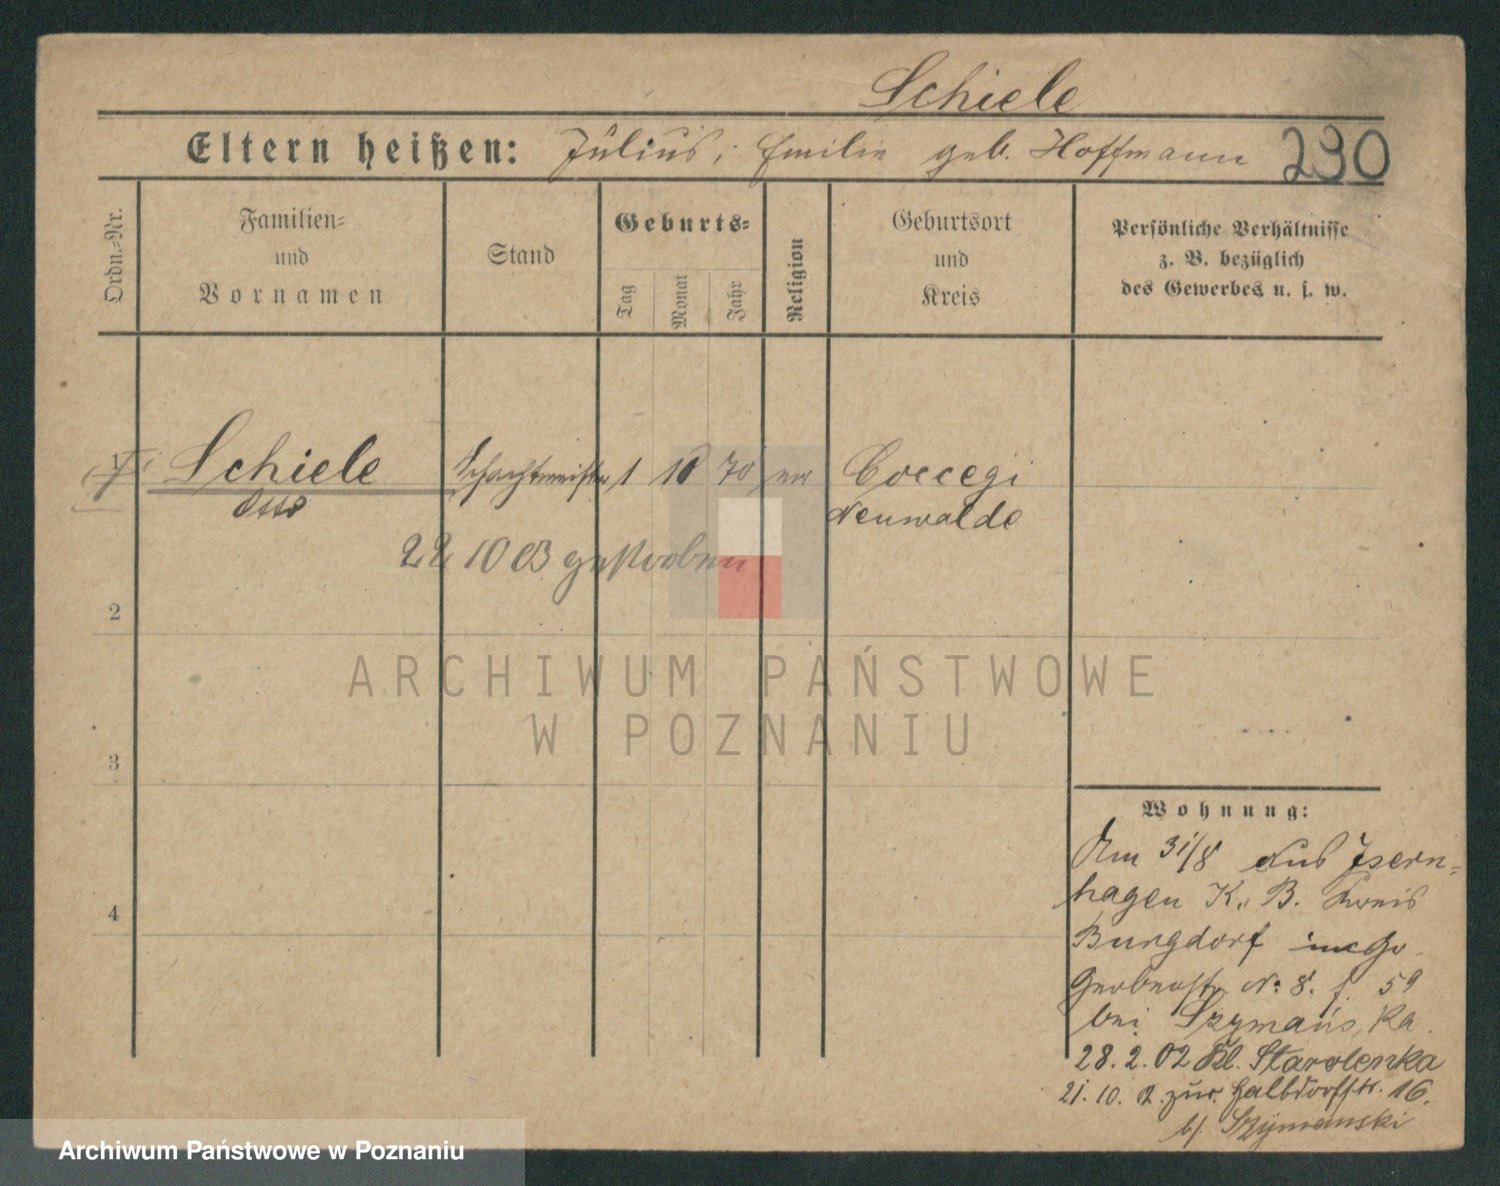 Schiele
Eltern heißen: Julius, Emilie geb. Hoffmann 290
Ordn.=Nr.
Familien=
und
Vornamen
Stand
Geburts=
Tag Monat Jahr
Religion
Geburtsort
und
Kreis
Persönliche Verhältnisse
z. B. bezüglich
des Gewerbes u. s. w.
Schiele Schachtmeister 1 10 70 ev Coccegi
Otto Neuwalde
22 10 03 gestorben
2
3
4
Wohnung:
Am 31/8 aus Isern=
hagen K. B. Kreis
Burgdorf
Gerberstr. No 8. 59
bei Szymańska
28. 2. 02 Kl. Starolenka
21. 10. 2. zur. Halbdorfstr. 16.
b/ Szymanski
ARCHIWUM PAŃSTWOWE
W POZNANIU
Archiwum Państwowe w Poznaniu